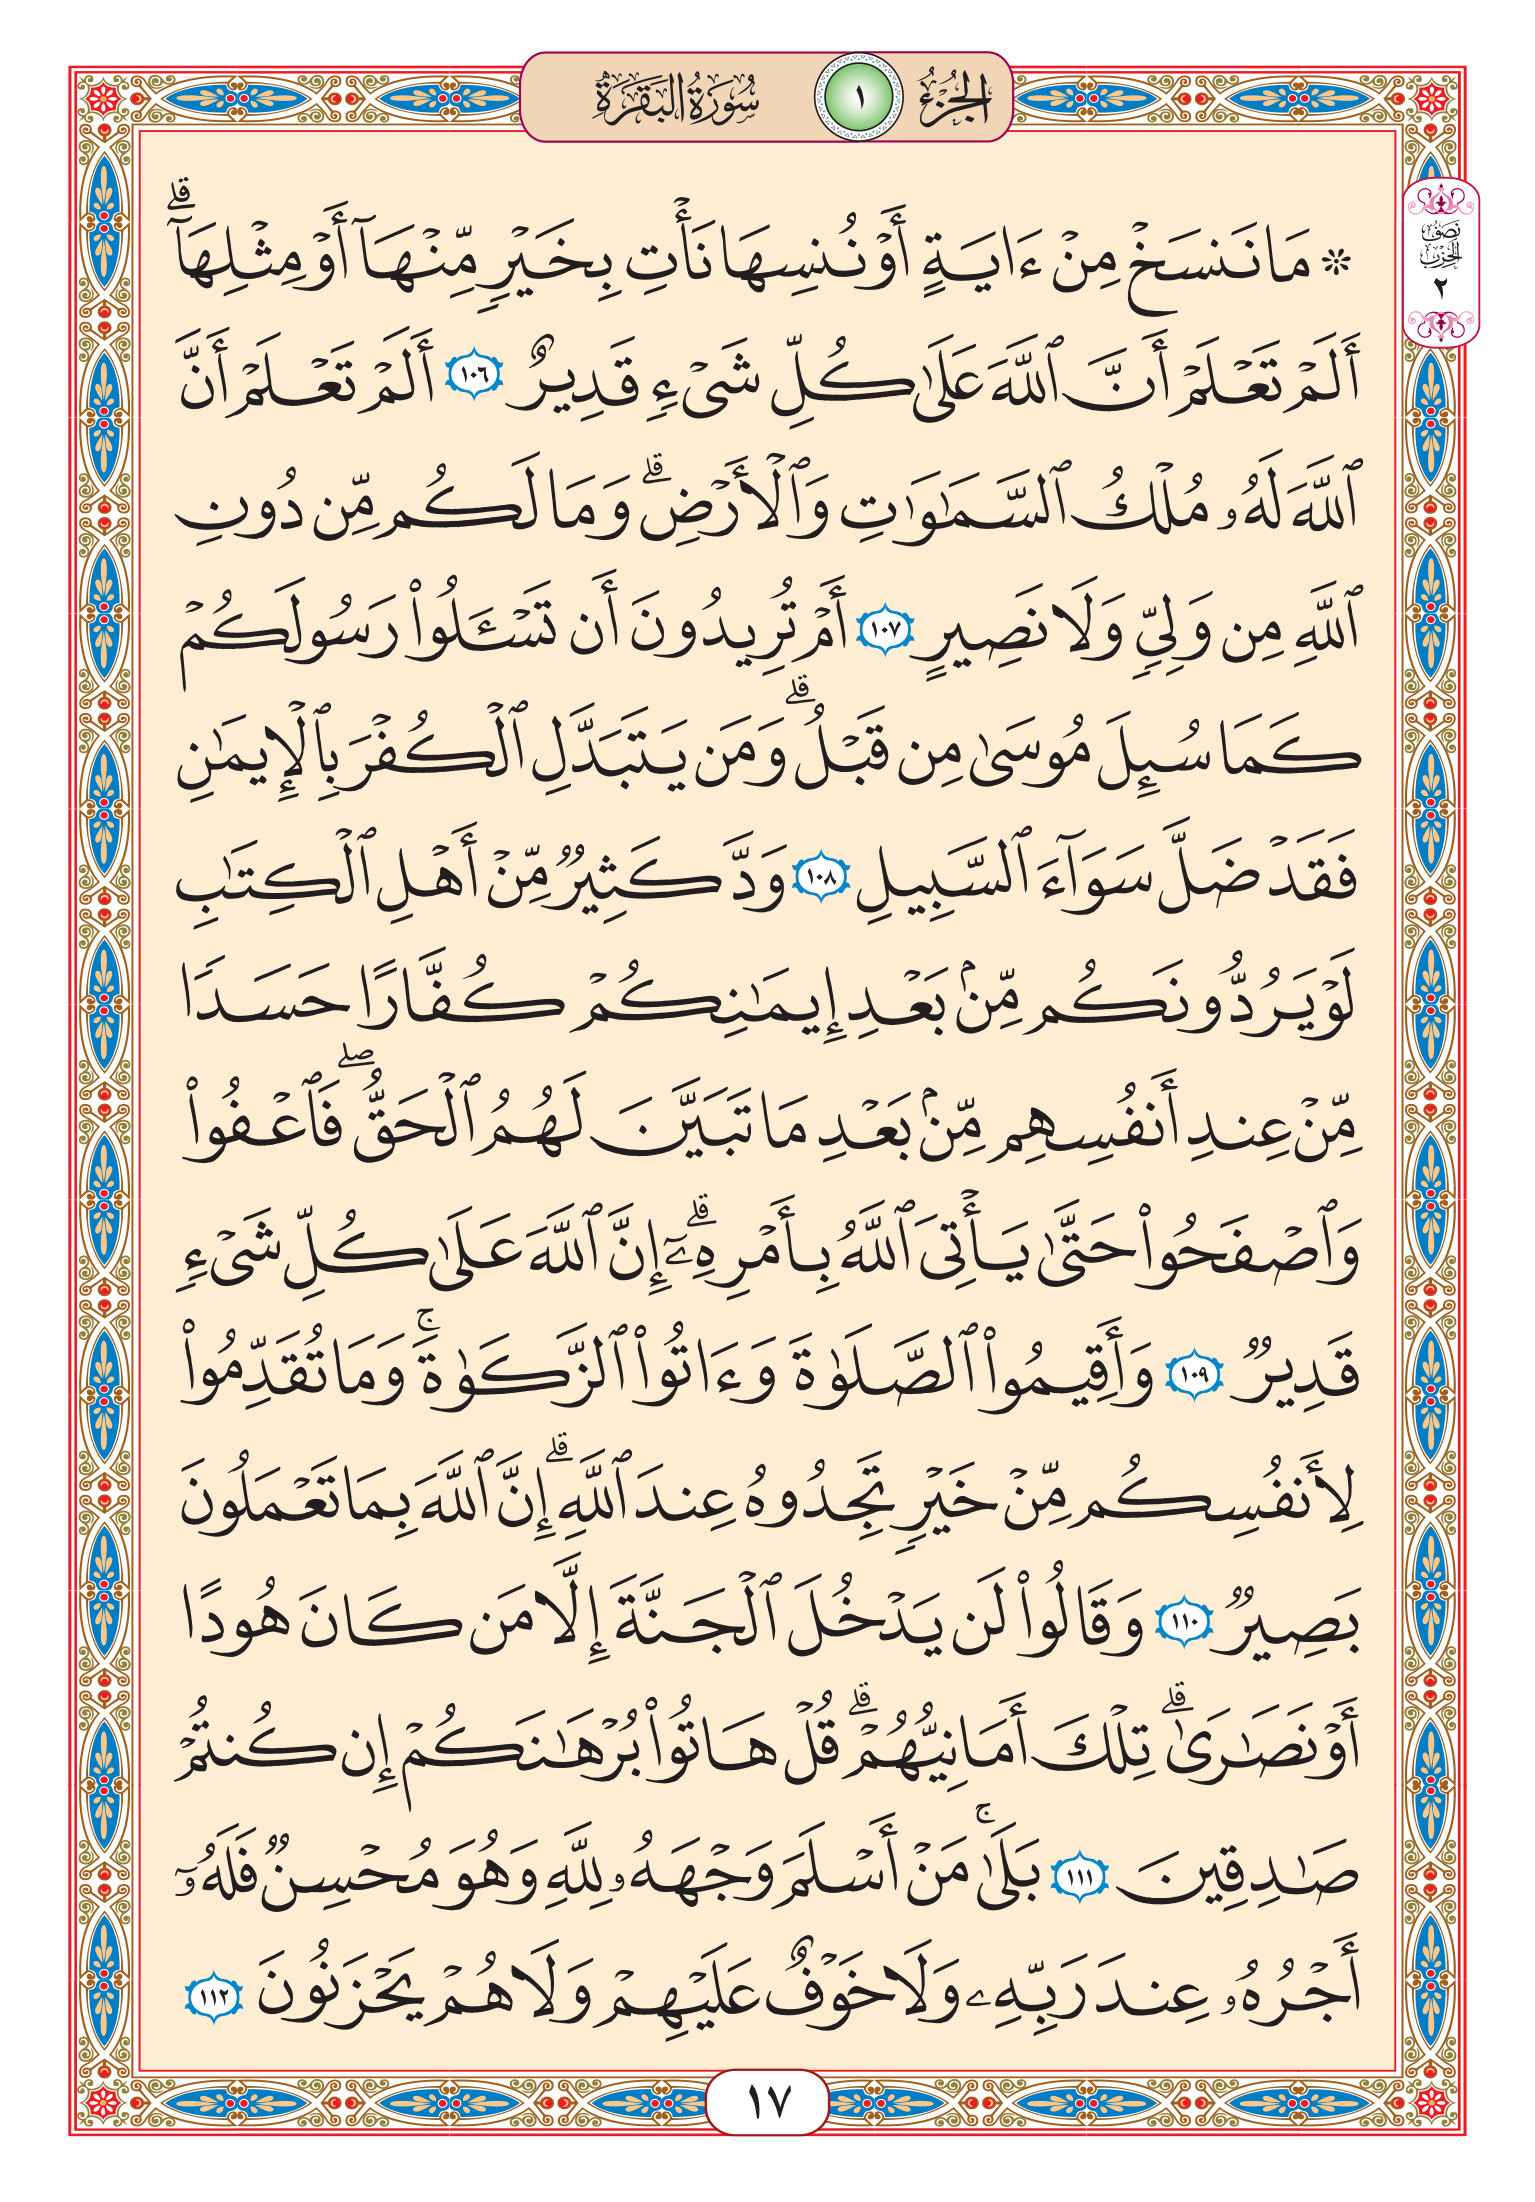 الجُزْءُ ١ سُورَةُ البَقَرَةِ
نِصْفُ
الحِزْبِ
٢
۞ مَا نَنسَخْ مِنْ ءَايَةٍ أَوْ نُنسِهَا نَأْتِ بِخَيْرٍ مِّنْهَآ أَوْ مِثْلِهَآۗ
أَلَمْ تَعْلَمْ أَنَّ ٱللَّهَ عَلَىٰ كُلِّ شَىْءٍ قَدِيرٌ ١٠٦ أَلَمْ تَعْلَمْ أَنَّ
ٱللَّهَ لَهُۥ مُلْكُ ٱلسَّمَٰوَٰتِ وَٱلْأَرْضِۗ وَمَا لَكُم مِّن دُونِ
ٱللَّهِ مِن وَلِىٍّ وَلَا نَصِيرٍ ١٠٧ أَمْ تُرِيدُونَ أَن تَسْـَٔلُوا۟ رَسُولَكُمْ
كَمَا سُئِلَ مُوسَىٰ مِن قَبْلُۗ وَمَن يَتَبَدَّلِ ٱلْكُفْرَ بِٱلْإِيمَٰنِ
فَقَدْ ضَلَّ سَوَآءَ ٱلسَّبِيلِ ١٠٨ وَدَّ كَثِيرٌ مِّنْ أَهْلِ ٱلْكِتَٰبِ
لَوْ يَرُدُّونَكُم مِّنۢ بَعْدِ إِيمَٰنِكُمْ كُفَّارًا حَسَدًا
مِّنْ عِندِ أَنفُسِهِم مِّنۢ بَعْدِ مَا تَبَيَّنَ لَهُمُ ٱلْحَقُّۖ فَٱعْفُوا۟
وَٱصْفَحُوا۟ حَتَّىٰ يَأْتِىَ ٱللَّهُ بِأَمْرِهِۦٓۗ إِنَّ ٱللَّهَ عَلَىٰ كُلِّ شَىْءٍ
قَدِيرٌ ١٠٩ وَأَقِيمُوا۟ ٱلصَّلَوٰةَ وَءَاتُوا۟ ٱلزَّكَوٰةَۚ وَمَا تُقَدِّمُوا۟
لِأَنفُسِكُم مِّنْ خَيْرٍ تَجِدُوهُ عِندَ ٱللَّهِۗ إِنَّ ٱللَّهَ بِمَا تَعْمَلُونَ
بَصِيرٌ ١١٠ وَقَالُوا۟ لَن يَدْخُلَ ٱلْجَنَّةَ إِلَّا مَن كَانَ هُودًا
أَوْ نَصَٰرَىٰۗ تِلْكَ أَمَانِيُّهُمْۗ قُلْ هَاتُوا۟ بُرْهَٰنَكُمْ إِن كُنتُمْ
صَٰدِقِينَ ١١١ بَلَىٰۚ مَنْ أَسْلَمَ وَجْهَهُۥ لِلَّهِ وَهُوَ مُحْسِنٌ فَلَهُۥٓ
أَجْرُهُۥ عِندَ رَبِّهِۦ وَلَا خَوْفٌ عَلَيْهِمْ وَلَا هُمْ يَحْزَنُونَ ١١٢
١٧